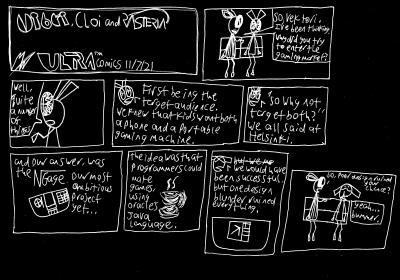 Cloi and
ULTRA Comics 11/7/21
So, Vektori,
I've been thinking
why did you try
to enter the
gaming market?
Well,
quite
a number
of
things
First being the
target audience.
We knew that kids want both
a phone and a portable
gaming machine.
"So why not
target both?"
we all said at
Helsinki.
and our answer, was
the NGage our most
ambitious
project
yet...
the idea was that
programmers could
make
games
using
oracles
Java
language.
but we no
we would have
been successful
but one design
blunder ruined
everything.
So, poor design ruined
your
chance?
yeah...
bummer.